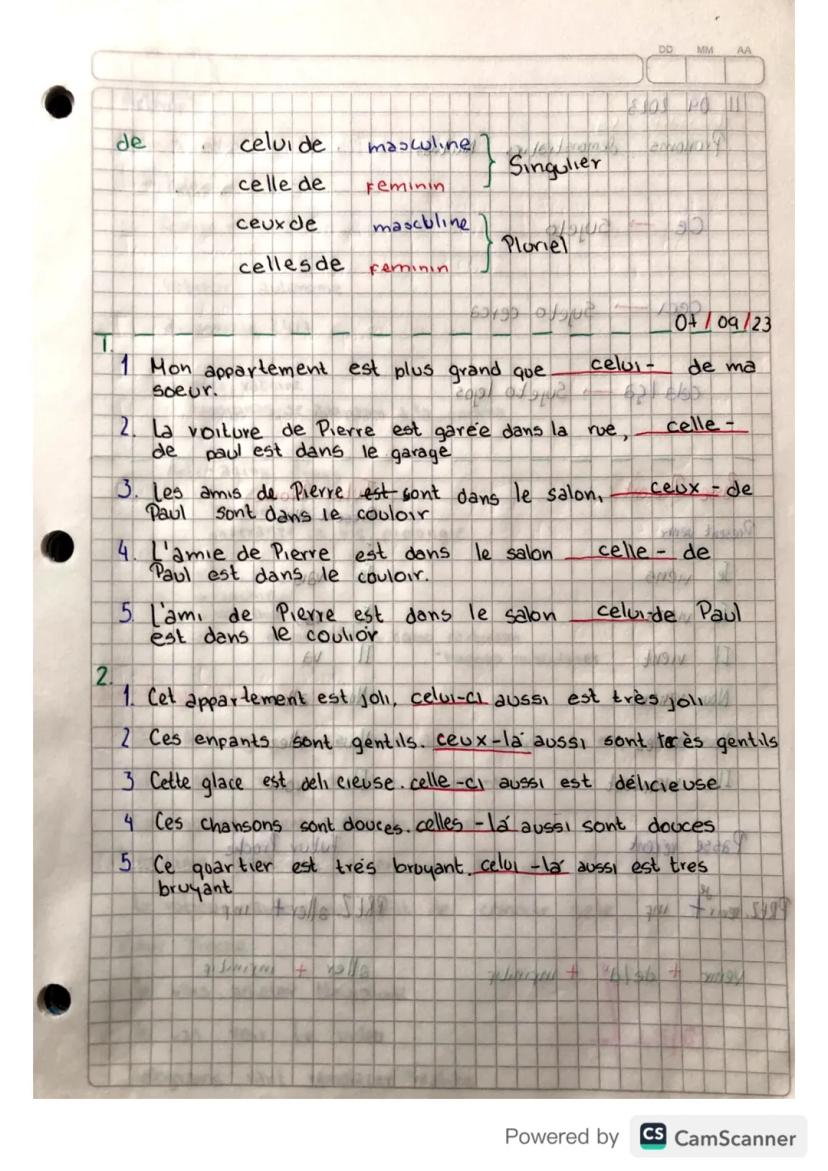 DD MM AA
de celui de masculine
Singulier
celle de Feminin
ceux de masculine
Pluriel
celles de Feminin
07/09/23
1.
1 Mon appartement est plus grand que celui- de ma
soeur.
2. La voiture de Pierre est garée dans la rue, celle-
de paul est dans le garage
3. Les amis de Pierre est sont dans le salon, ceux - de
Paul sont dans le couloir
4. L'amie de Pierre est dans le salon celle - de
Paul est dans le couloir.
5. L'ami de Pierre est dans le salon celui-de Paul
est dans le coulior
2.
1. Cet appartement est joli, celui-ci aussi est très joli
2 Ces enpants sont gentils. ceux-lá aussi sont très gentils
3 Cette glace est deli cieuse. celle-ci aussi est délicieuse
4 Ces chansons sont douces. celles-lá aussi sont douces
5 Ce quartier est trés bruyant. celui-lá aussi est tres
bruyant
Powered by CS CamScanner